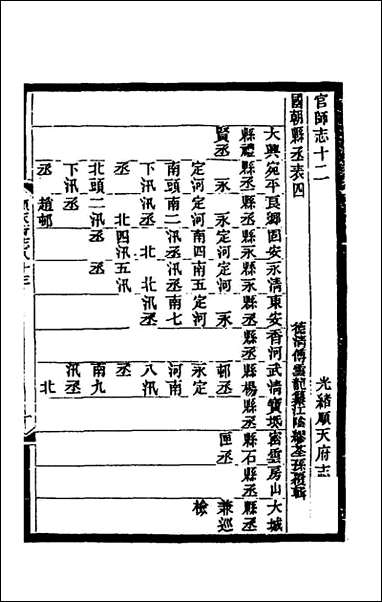 官師志十二　光緒順天府志
國朝縣丞表四　德清傅雲龍纂江陰繆荃孫覆輯
大興宛平良鄉固安永清東安香河武清寶坻密雲房山大城
縣禮縣丞縣丞縣丞縣丞縣丞縣丞縣楊縣丞縣石縣丞縣丞
賢丞　永　永定河定河　永　邨丞　匣丞　兼巡
定河定河南四南五定河　永定　檢
南頭南二汛丞汛丞南七　河南
下汛汛丞　北　北汛丞　八汛
丞　北四汛五汛　丞
北頭二汛丞　丞　南九
下汛丞　汛丞
丞　趙邨　北